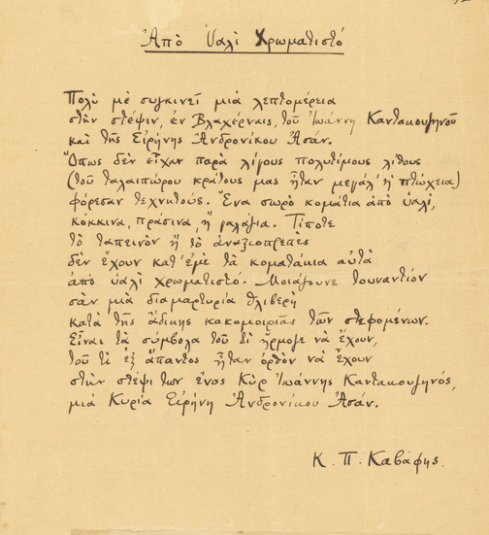 Ἀπὸ ὑαλὶ χρωματιστό
Πολὺ μὲ συγκινεῖ μιὰ λεπτομέρεια
στὴν στέψιν, ἐν Βλαχέρναις, τοῦ Ἰωάννη Καντακουζηνοῦ
καὶ τῆς Εἰρήνης Ἀνδρονίκου Ἀσάν.
Ὅπως δὲν εἶχαν παρὰ λίγους πολυτίμους λίθους
(τοῦ ταλαιπώρου κράτους μας ἦταν μεγάλ’ ἡ πτώχεια)
φόρεσαν τεχνητούς. Ἕνα σωρὸ κομάτια ἀπὸ ὑαλί,
κόκκινα, πράσινα, ἢ γαλάζια. Τίποτε
τὸ ταπεινὸν ἢ τὸ ἀναξιοπρεπὲς
δὲν ἔχουν κατ’ ἐμὲ τὰ κοματάκια αὐτὰ
ἀπὸ ὑαλὶ χρωματιστό. Μοιάζουνε τουναντίον
σὰν μιὰ διαμαρτυρία θλιβερὴ
κατὰ τῆς ἄδικης κακομοιριᾶς τῶν στεφομένων.
Εἶναι τὰ σύμβολα τοῦ τί ἥρμοζε νὰ ἔχουν,
τοῦ τί ἐξ ἅπαντος ἦταν ὀρθὸν νὰ ἔχουν
στὴν στέψι των ἕνας Κὺρ Ἰωάννης Καντακουζηνός,
μιὰ Κυρία Εἰρήνη Ἀνδρονίκου Ἀσάν.
Κ. Π. Καβάφης